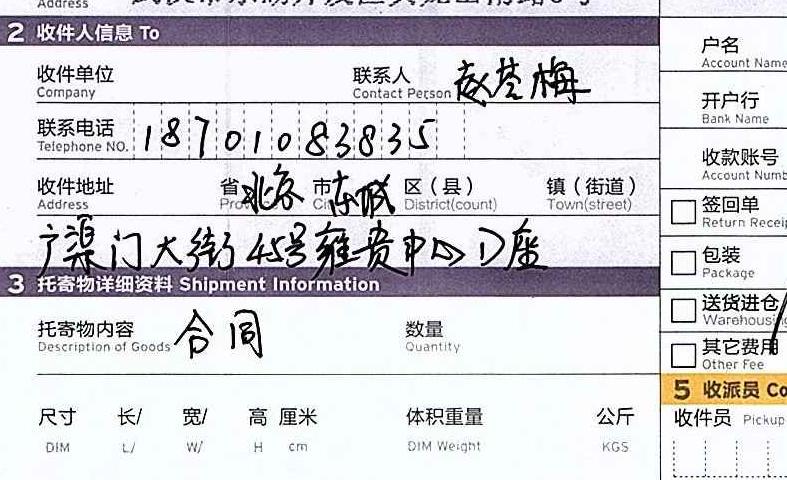 Address
2 收件人信息 To
收件单位 联系人 赵苍梅
Company Contact Person
联系电话 18701083835
Telephone NO.
收件地址 省 北京 市 东城 区（县） 镇（街道）
Address District(count) Town(street)
广渠门大街45号雍贵中心D座
3 托寄物详细资料 Shipment Information
托寄物内容 合同 数量
Description of Goods Quantity
尺寸 长/ 宽/ 高 厘米 体积重量 公斤
DIM L/ W/ H cm DIM Weight KGS
户名
Account Name
开户行
Bank Name
收款账号
Account Numb
签回单
Return Receip
包装
Package
送货进仓
Warehousing
其它费用
Other Fee
5 收派员 Co
收件员 Pickup